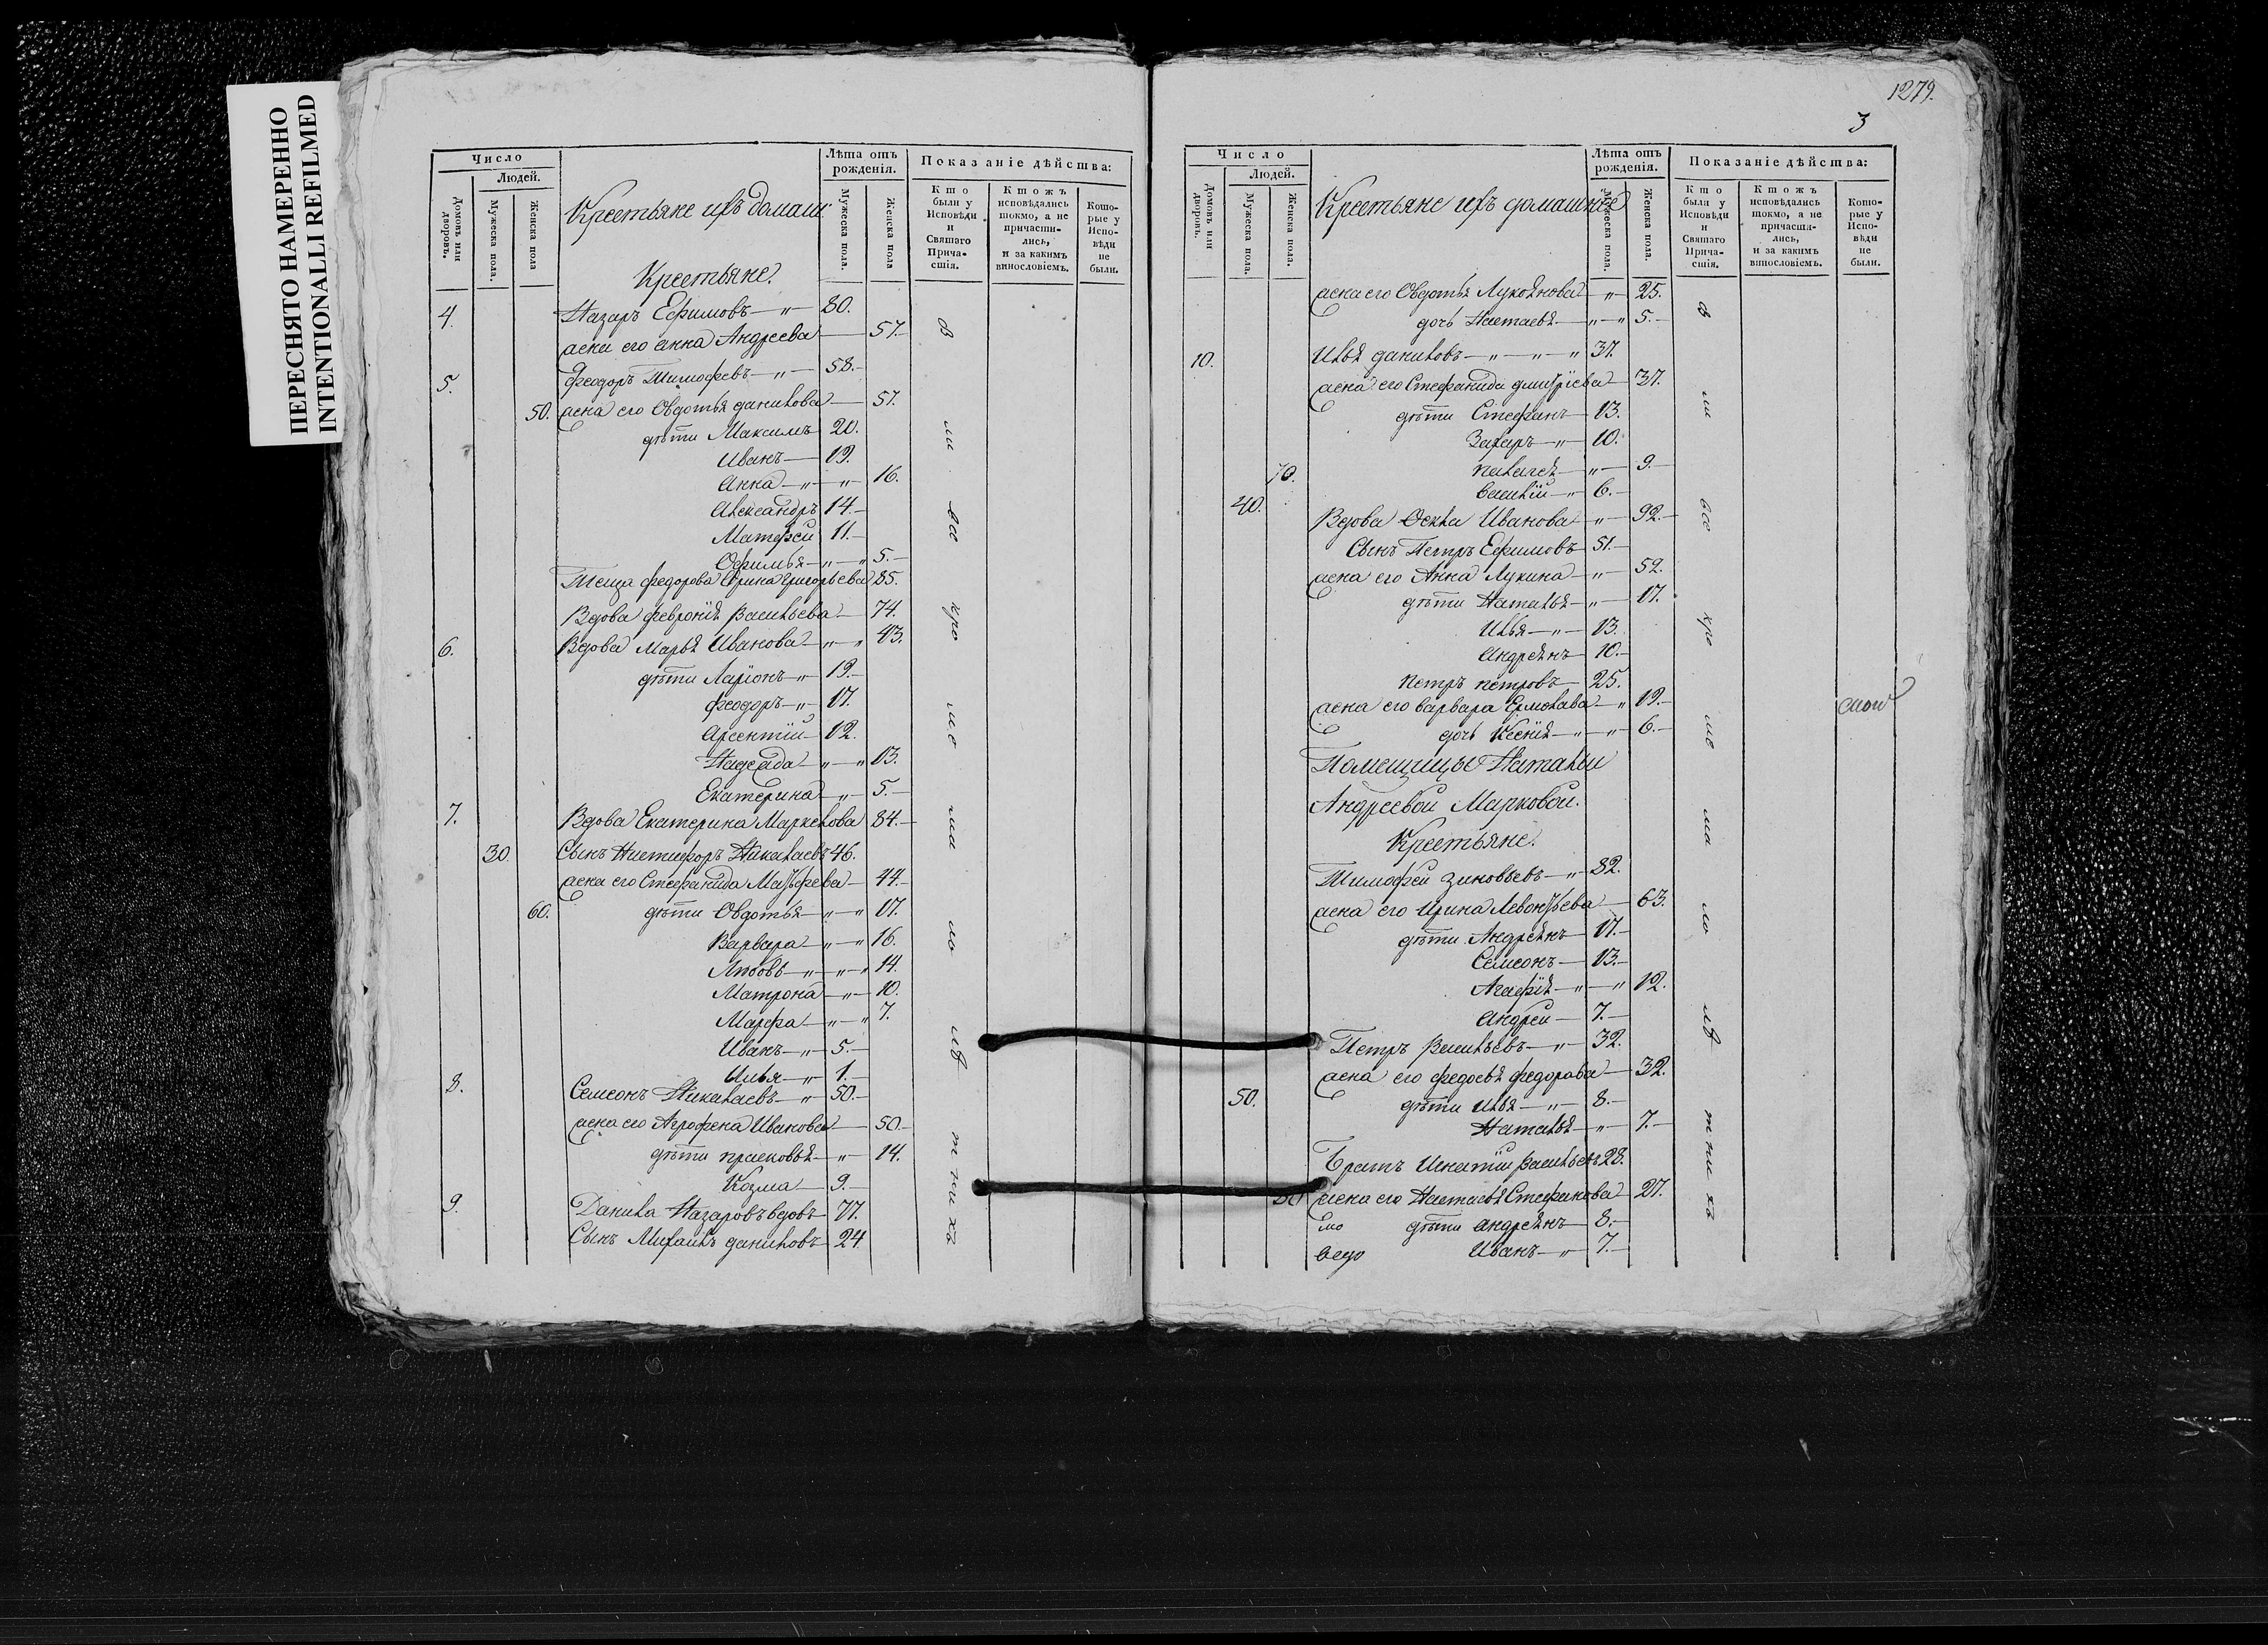 ПЕРЕСНЯТО НАМЕРЕННО
INTENTIONALLI REFILMED
Число
Людей.
Домовъ или дворовъ.
Мужеска пола.
Женска пола
Крестьяне ихъ домаш:
Лѣта отъ рожденія.
Мужеска пола.
Женска пола
Показаніе дѣйства:
Кто были у Исповѣди и Святаго Причастія.
Ктожъ исповѣдались токмо, а не причастились, и за какимъ винословіемъ.
Которые у Исповѣди не были.
Крестьяне.
4. Назаръ Ефимовъ — 80.
жена его Анна Андреева — 57.
5. Феодоръ Тимофевъ — 58.
50. жена его Овдотья данилова — 57.
дѣти Максимъ 20.
Иванъ — 19.
Анна — 16.
Александръ 14.
Матфей 11.
Офимья — 5.
Теща федорова Ирина Григорьева 85.
Вдова февронія Васильева — 74.
6. Вдова Марья Иванова — 43.
дѣти Ларіонъ — 19.
феодоръ — 17.
Арсентій — 12.
Надежда — 13.
Екатерина — 5.
7. Вдова Екатерина Маркелова 84.
30. Сынъ Никифоръ Николаевъ 46.
жена его Стефанида Матфева — 44.
60. дѣти Овдотья — 17.
Варвара — 16.
Любовь — 14.
Матрона — 10.
Марфа — 7.
Иванъ — 5.
Илья — 1.
8. Семеонъ Николаевъ — 50.
жена его Агрофена Иванова — 50.
дѣти прасковья — 14.
Козма — 9.
9. Данила Назаровъ вдовъ 77.
Сынъ Михаилъ даниловъ 24
1279.
3
Число
Людей.
Домовъ или дворовъ.
Мужеска пола.
Женска пола.
Крестьяне ихъ домашніе
Лѣта отъ рожденія.
Мужеска пола.
Женска пола.
Показаніе дѣйства:
Кто были у Исповѣди и Святаго Причастія.
Ктожъ исповѣдались токмо, а не причастились, и за какимъ винословіемъ.
Которые у Исповѣди не были.
жена его Овдотья Лукоянова — 25.
дочь Настасья — 5.
10. Илья даниловъ — 37.
жена его Стефанида дмитріева — 37.
дѣти Стефанъ — 13.
Захаръ — 10.
70. пелагея — 9.
40. василій — 6.
Вдова Фекла Иванова — 92.
Сынъ Петръ Ефимовъ 51.
жена его Анна Лукина — 52.
дѣти Наталья — 17.
Илья — 13.
Андреянъ 10.
петръ петровъ 25.
жена его варвара Ермолава — 19.
дочь Ксенія — 6.
Помещицы Натальи
Андреевой Марковой.
Крестьяне.
Тимофей зиновьевъ — 82.
жена его ирина Левонтьева — 63.
дѣти Андреянъ 17.
Семеонъ — 13.
Агафія — 12.
Андрей — 7.
Петръ Васильевъ — 32.
жена его федосья федорава — 32.
50. дѣти илья — 8.
Наталья — 7.
Братъ Игнатій Васильевъ 28.
80 жена его Настасья Стефанова — 27.
дѣти андреянъ — 8.
Иванъ — 7.